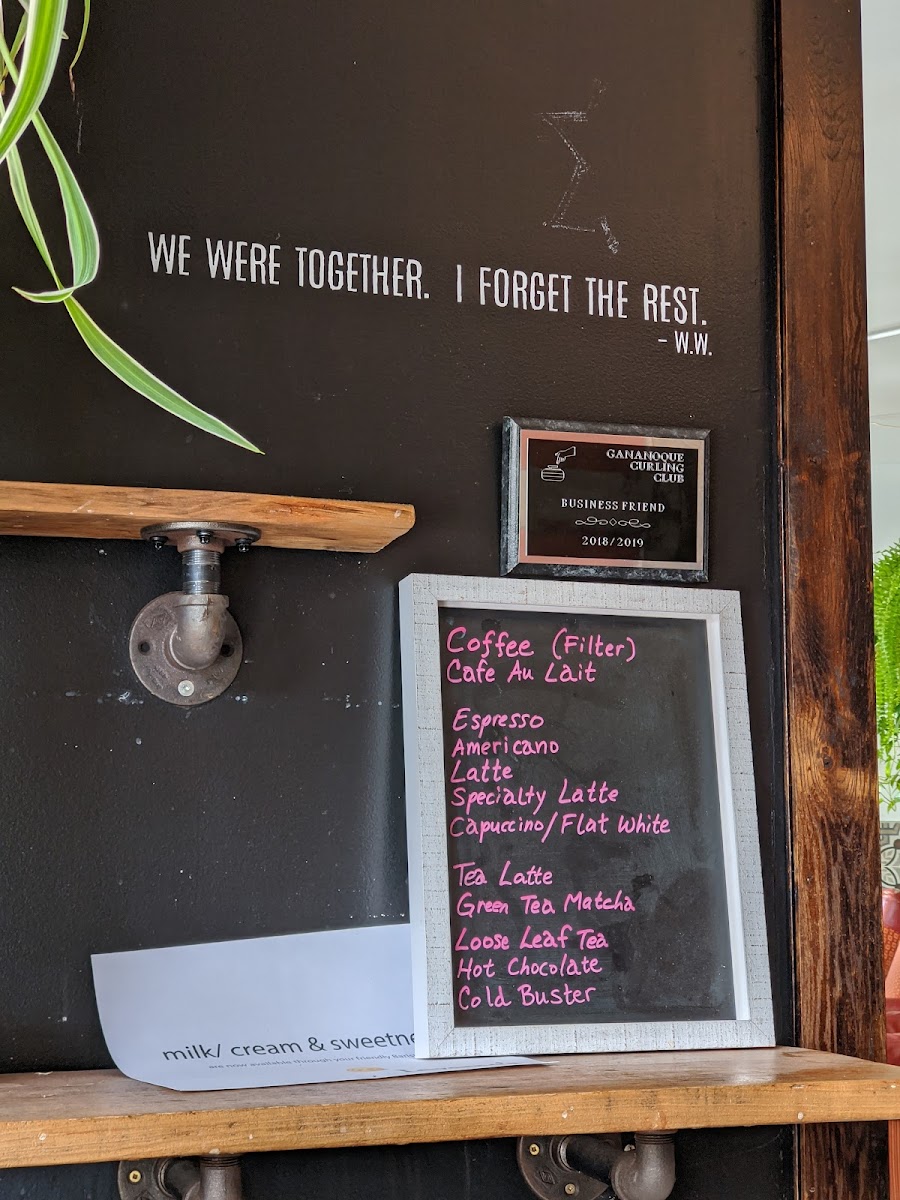 WE WERE TOGETHER. I FORGET THE REST.
- W.W.
GANANOQUE
CURLING
CLUB
BUSINESS FRIEND
2018/2019
Coffee (Filter)
Cafe Au Lait
Espresso
Americano
Latte
Specialty Latte
Capuccino/Flat White
Tea Latte
Green Tea Matcha
Loose Leaf Tea
Hot Chocolate
Cold Buster
milk/ cream & sweetne
are now available through your friendly